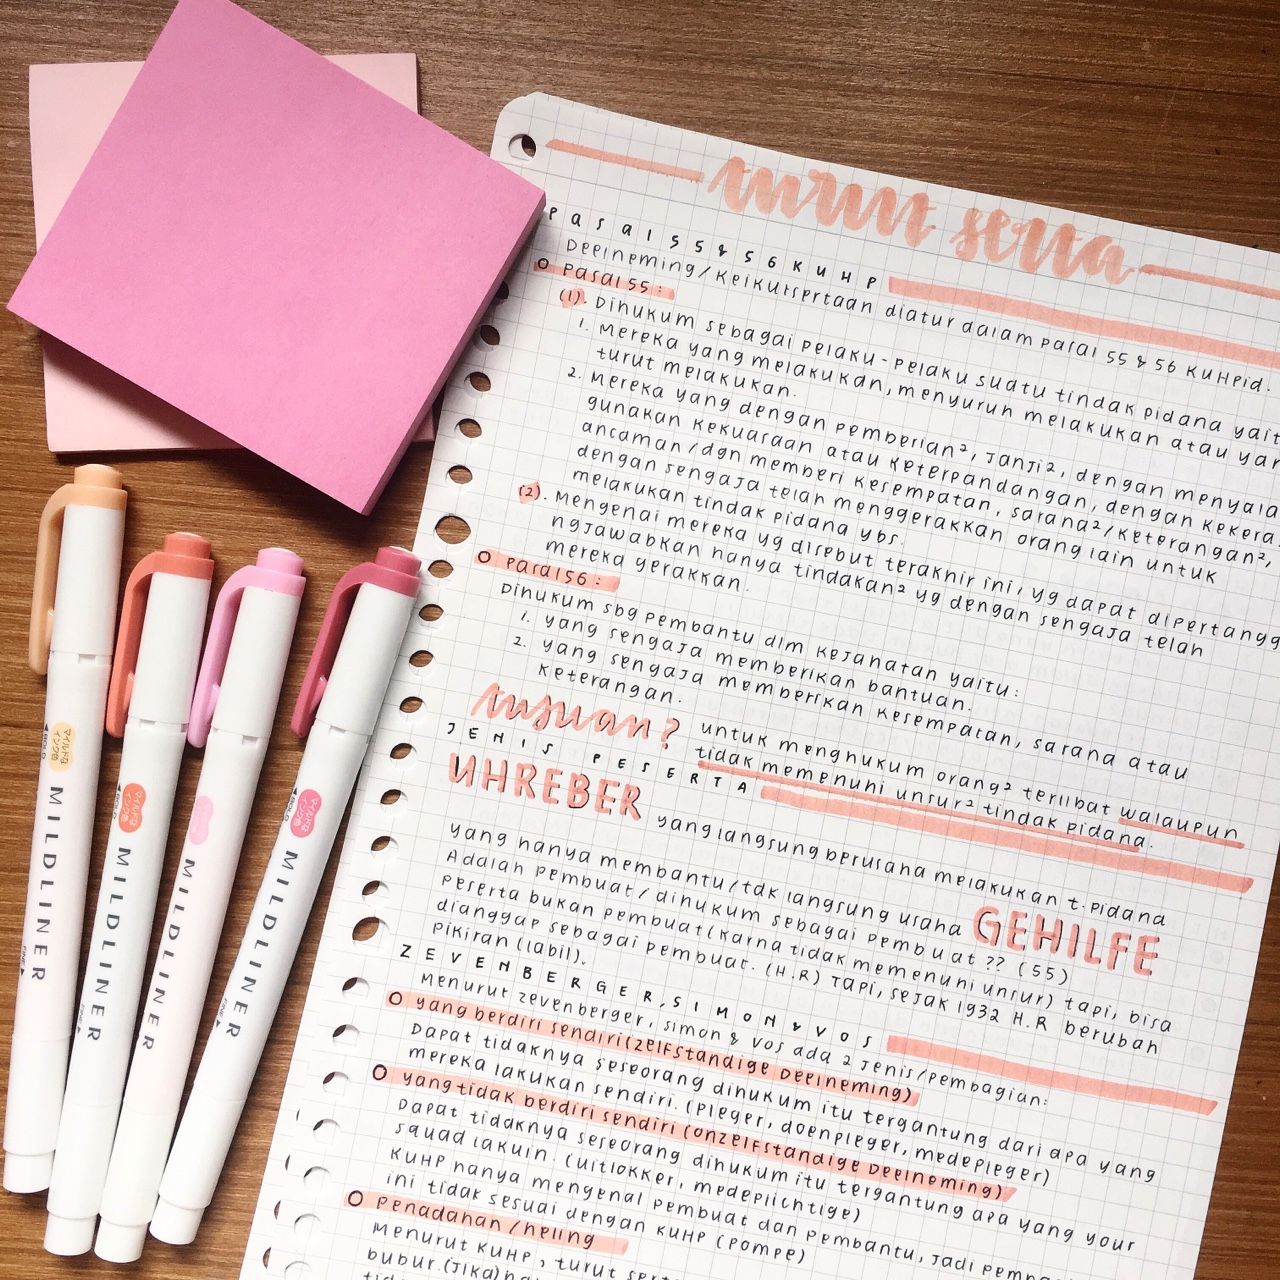 turut serta
PASAL 55 & 56 KUHP
Deelneming/Keikutsertaan diatur dalam pasal 55 & 56 KUHPid.
Pasal 55 :
(1). Dihukum sebagai pelaku-pelaku suatu tindak pidana yait
1. Mereka yang melakukan, menyuruh melakukan atau yan
turut melakukan.
2. Mereka yang dengan pemberian², janji², dengan menyala
gunakan kekuasaan atau keterpandangan, dengan kekera
ancaman/dgn memberi kesempatan, sarana²/keterangan²,
dengan sengaja telah menggerakkan orang lain untuk
melakukan tindak pidana ybs.
(2). Mengenai mereka yg disebut terakhir ini, yg dapat dipertangg
ngjawabkan hanya tindakan² yg dengan sengaja telah
mereka gerakkan.
Pasal 56 :
Dihukum sbg pembantu dlm kejahatan yaitu :
1. yang sengaja memberikan bantuan.
2. yang sengaja memberikan kesempatan, sarana atau
keterangan.
tujuan? untuk menghukum orang² terlibat walaupun
tidak memenuhi unsur² tindak pidana.
JENIS PESERTA
UHREBER yang langsung berusaha melakukan t. pidana
yang hanya membantu/tdk langsung usaha GEHILFE
Adalah pembuat/dihukum sebagai pembuat ?? (55)
Peserta bukan pembuat (karna tidak memenuhi unsur) tapi, bisa
dianggap sebagai pembuat. (H.R) Tapi, sejak 1932 H.R berubah
pikiran (labil).
ZEVENBERGER, SIMON & VOS
Menurut Zevenberger, Simon & Vos ada 2 jenis/pembagian:
yang berdiri sendiri (zelfstandige Deelneming)
Dapat tidaknya seseorang dihukum itu tergantung dari apa yang
mereka lakukan sendiri. (pleger, doenpleger, medepleger)
yang tidak berdiri sendiri (onzelfstandige Deelneming)
Dapat tidaknya seseorang dihukum itu tergantung apa yang your
squad lakuin. (uitlokker, medeplichtige)
KUHP hanya mengenal pembuat dan pembantu, jadi pemba
ini tidak sesuai dengan KUHP (Pompe)
penadahan/heling
Menurut KUHP, turut sert
bubur. (Jika) 
MILDLINER
MILDLINER
MILDLINER
MILDLINER